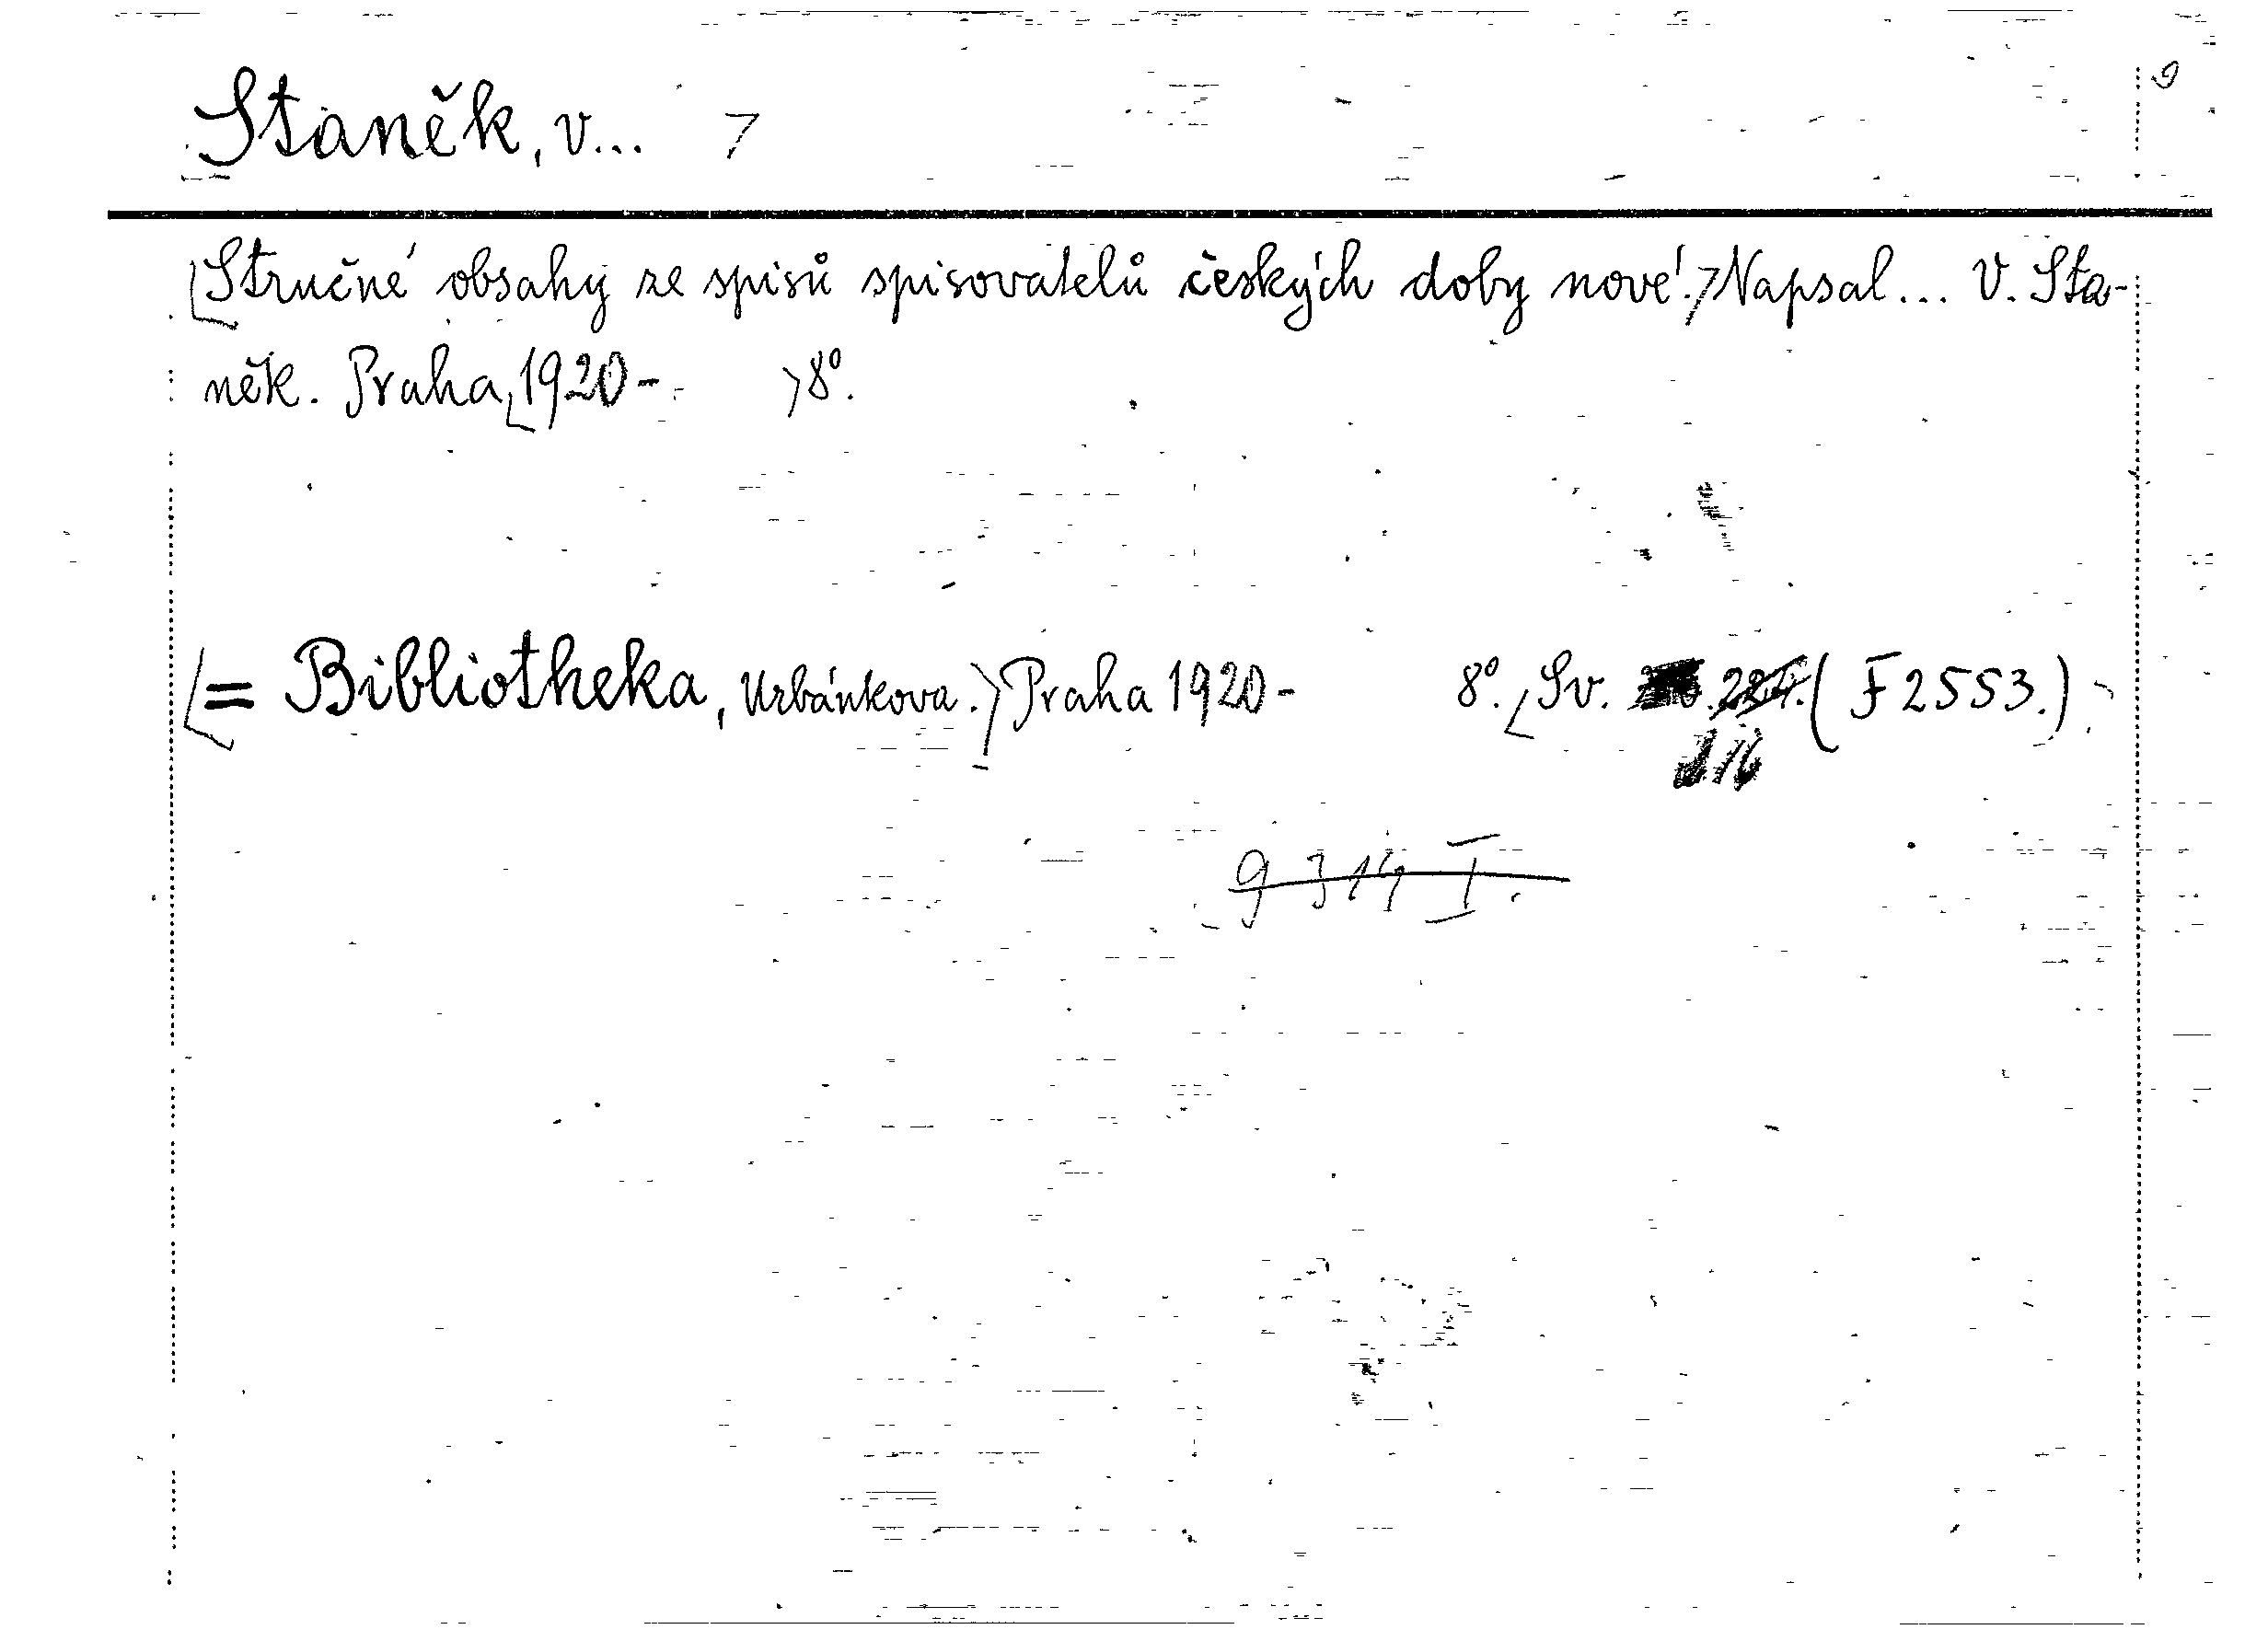 Staněk, V...
Stručné obsahy ze spisů spisovatelů českých doby nové. Napsal... V. Sta-
něk. Praha 1920- 8°.
= Bibliotheka, Urbánkova. Praha 1920- 8°. Sv. (F 2553.)
9314 I.